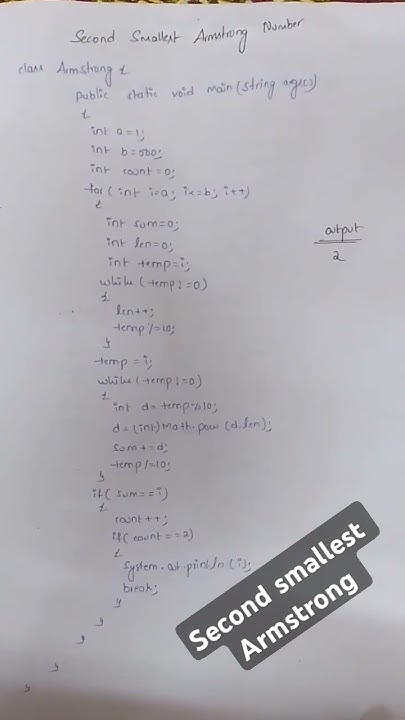 Second Smallest Armstrong Number
class Armstrong {
public static void main(String args[])
{
int a=1;
int b=500;
int count=0;
for(int i=a; i<=b; i++)
{
int sum=0;
int len=0;
int temp=i;
while(temp!=0)
{
len++;
temp/=10;
}
temp=i;
while(temp!=0)
{
int d=temp%10;
d=(int)Math.pow(d,len);
sum+=d;
temp/=10;
}
if(sum==i)
{
count++;
if(count==2)
{
System.out.println(i);
break;
}
}
}
}
}
output
2
Second smallest
Armstrong